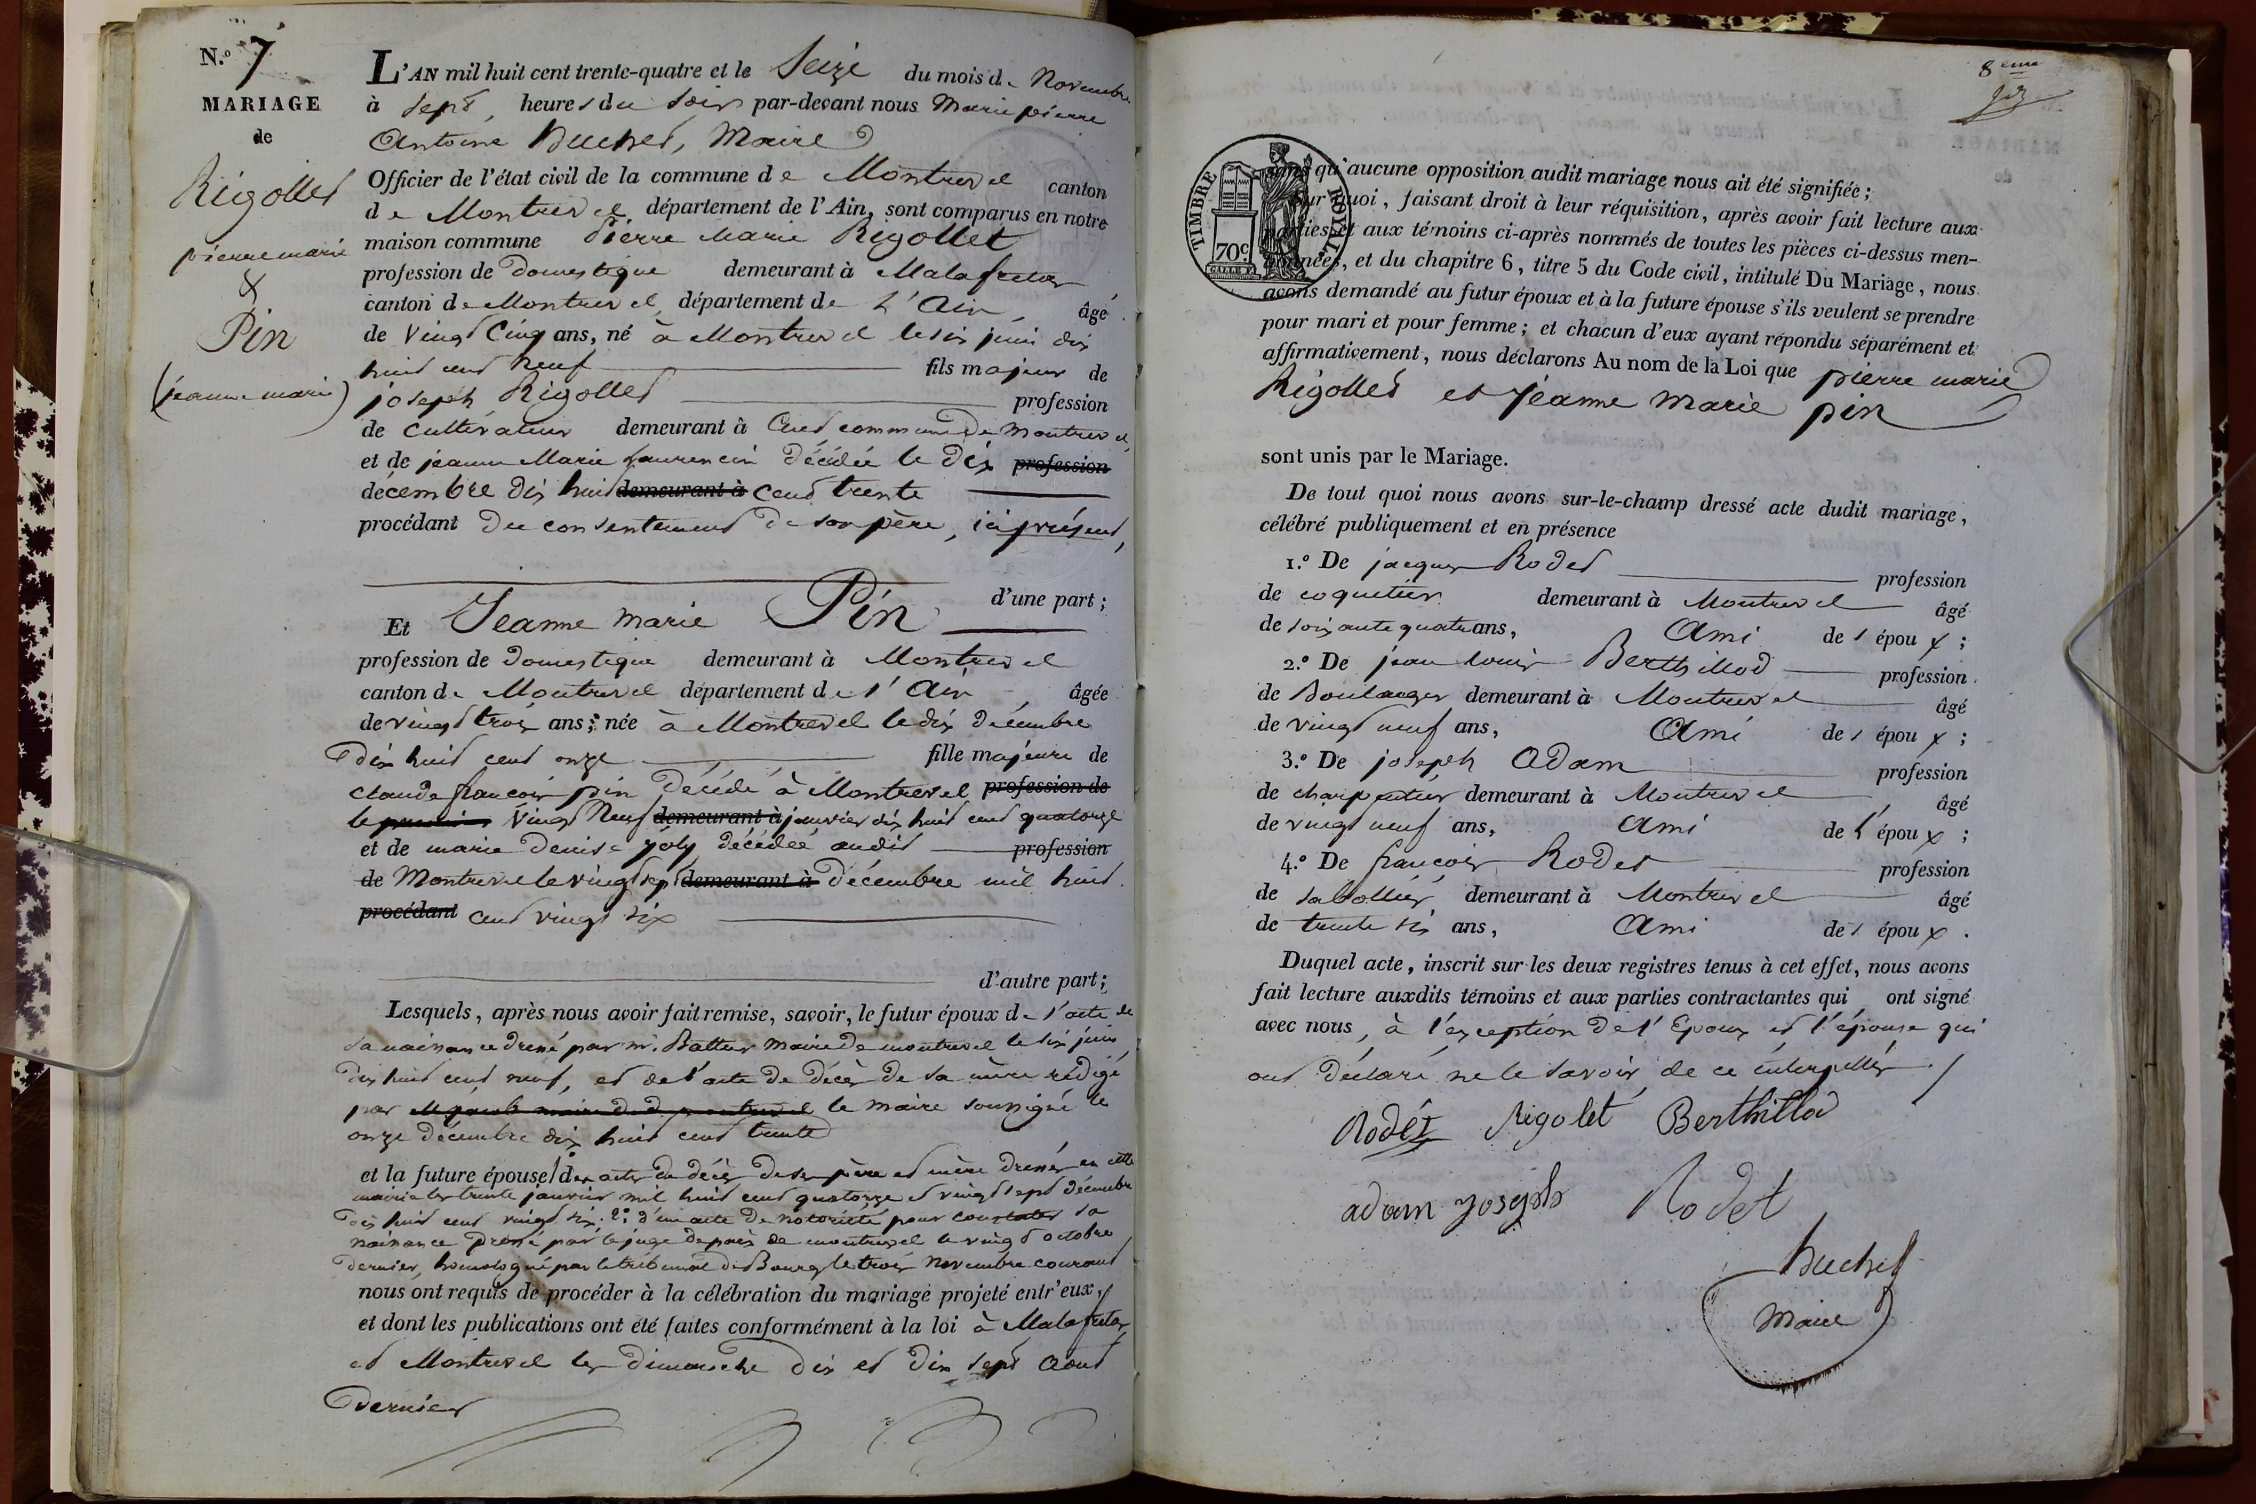 N.o 7
MARIAGE
de
Rigollet
pierre marie
&
Pin
(jeanne marie)
L'AN mil huit cent trente-quatre et le Seize du mois de Novembre
à sept heures du soir par-devant nous Marie pierre
Antoine Buchet, Maire
Officier de l'état civil de la commune de Montrevel canton
de Montrevel, département de l'Ain, sont comparus en notre
maison commune Pierre Marie Rigollet
profession de Domestique demeurant à Malafretaz
canton de Montrevel, département de L'Ain, âgé
de Vingt Cinq ans, né à Montrevel le six juin dix
huit cent neuf fils majeur de
joseph Rigollet profession
de Cultivateur demeurant à Cuet commune de Montrevel
et de jeanne Marie Laurencin décédée le Dix profession
décembre dix huit demeurant à cent trente
procédant du consentement de son père, ici présent,
d'une part;
Et Jeanne marie Pin
profession de domestique demeurant à Montrevel
canton de Montrevel département de l'Ain, âgée
de vingt trois ans; née à Montrevel le dix décembre
dix huit cent onze fille majeure de
claude françois pin décédé à Montrevel profession de
le Vingt Neuf demeurant à janvier dix huit cent quatorze
et de marie Denise joly décédée audit profession
de Montrevel le vingt sept demeurant à décembre mil huit
procédant cent vingt six
d'autre part;
Lesquels, après nous avoir fait remise, savoir, le futur époux de l'acte de
sa naissance dressé par mr. Battur maire de montrevel le six juin
dix huit cent neuf, et de l'acte de décès de sa mère rédigé
par le maire soussigné le
onze décembre dix huit cent trente
et la future épouse 1° des actes de décès de ses père et mère dressés en cette
mairie les trente janvier mil huit cent quatorze et vingt sept décembre
dix huit cent vingt six. 2° d'un acte de notoriété pour constater sa
naissance dressé par le juge de paix de montrevel le vingt octobre
dernier, homologué par le tribunal de Bourg le trois Novembre courant
nous ont requis de procéder à la célébration du mariage projeté entr'eux,
et dont les publications ont été faites conformément à la loi à Malafretaz
et Montrevel les dimanche dix et dix sept Aout
dernier
8eme
TIMBRE ROYAL
70c
sans qu'aucune opposition audit mariage nous ait été signifiée;
Sur quoi, faisant droit à leur réquisition, après avoir fait lecture aux
parties et aux témoins ci-après nommés de toutes les pièces ci-dessus men-
tionnées, et du chapitre 6, titre 5 du Code civil, intitulé Du Mariage, nous
avons demandé au futur époux et à la future épouse s'ils veulent se prendre
pour mari et pour femme; et chacun d'eux ayant répondu séparément et
affirmativement, nous déclarons Au nom de la Loi que pierre marie
Rigollet et Jeanne Marie pin
sont unis par le Mariage.
De tout quoi nous avons sur-le-champ dressé acte dudit mariage,
célébré publiquement et en présence
1.o De jacques Rodet profession
de coquetier demeurant à Montrevel âgé
de soixante quatre ans, Ami de l'époux;
2.o De jean louis Berthillod profession
de Boulanger demeurant à Montrevel âgé
de vingt neuf ans, Ami de l'époux;
3.o De joseph Adam profession
de charpentier demeurant à Montrevel âgé
de vingt neuf ans, Ami de l'époux;
4.o De françois Rodet profession
de sabottier demeurant à Montrevel âgé
de trente six ans, Ami de l'époux.
Duquel acte, inscrit sur les deux registres tenus à cet effet, nous avons
fait lecture auxdits témoins et aux parties contractantes qui ont signé
avec nous, à l'exception de l'Epoux et l'épouse qui
ont déclaré ne le savoir de ce interpellés
Rodet Rigolet Berthillod
adam joseph Rodet
Buchet
Maire